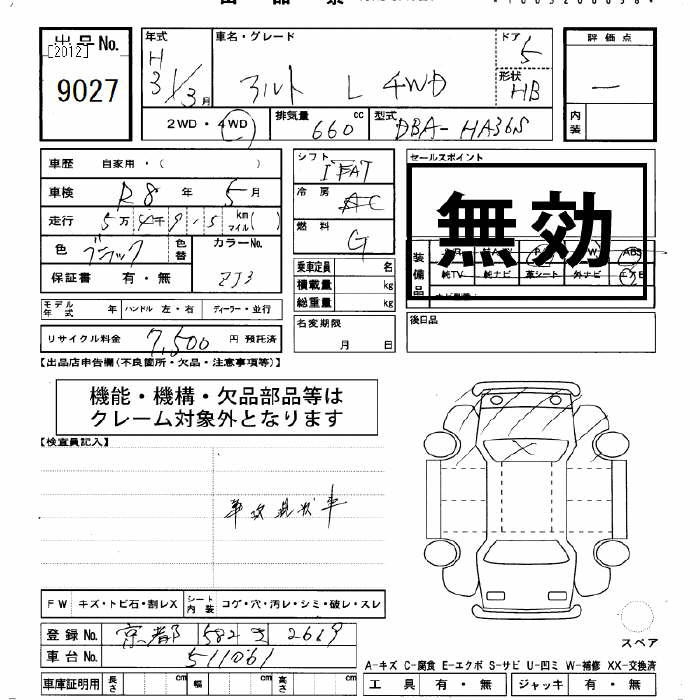 出品No.
[2012]
9027
年式
H
31/3月
車名・グレード
アルト L 4WD
ドア
5
形状
HB
評価点
ー
内装
2WD・4WD
排気量
660 cc
型式
DBA-HA36S
車歴 自家用・( )
車検 R8 年 5 月
走行 5万 4千 9 . 5 km マイル( )
色 ブラック 色替
カラーNo.
ZJ3
保証書 有・無
シフト
IFAT
冷房
AC
燃料
G
乗車定員 名
積載量 kg
総重量 kg
セールスポイント
無効
装備品
純TV 純ナビ 革シート 外ナビ エアB
モデル年式 年 ハンドル 左・右 ディーラー・並行
名変期限
月 日
後日品
リサイクル料金 7,500 円 預託済
【出品店申告欄(不良箇所・欠品・注意事項等)】
機能・機構・欠品部品等は
クレーム対象外となります
【検査員記入】
事故現状車
FW キズ・トビ石・割レX シート内装 コゲ・穴・汚レ・シミ・破レ・スレ
登録No. 京都 582 き 2619
車台No. 511061
スペア
A-キズ C-腐食 E-エクボ S-サビ U-凹ミ W-補修 XX-交換済
車庫証明用 長さ cm 幅 cm 高さ cm
工具 有・無 ジャッキ 有・無